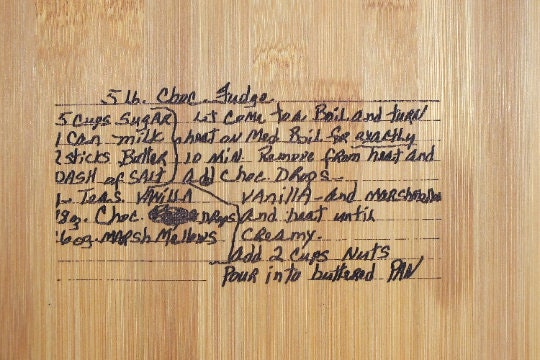 5 lb. Choc. Fudge
5 Cups Sugar
1 Can milk
2 sticks Butter
DASH of SALT
1 Teas. VANillA
18oz. Choc. DROPS
16oz. MARSh Mellows
Let Come to a Boil and turn
heat on Med Boil for exactly
10 Min. Remove from heat and
add Choc Drops
VANillA and MARShmellow
and heat until
Creamy.
add 2 Cups Nuts
Pour into buttered PAN